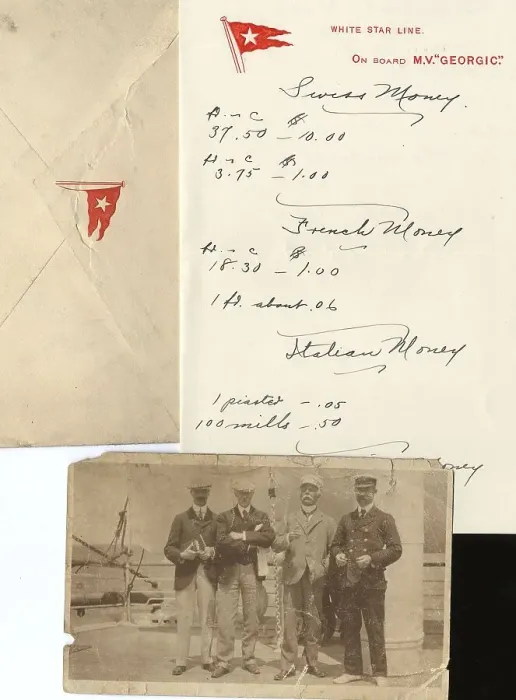 WHITE STAR LINE.
ON BOARD M.V. "GEORGIC".
Swiss Money.
fr - c $
37.50 - 10.00
fr - c $
3.75 - 1.00
French Money
fr - c $
18.30 - 1.00
1 fr. about .06
Italian Money
1 piaster - .05
100 mills - .50
oney